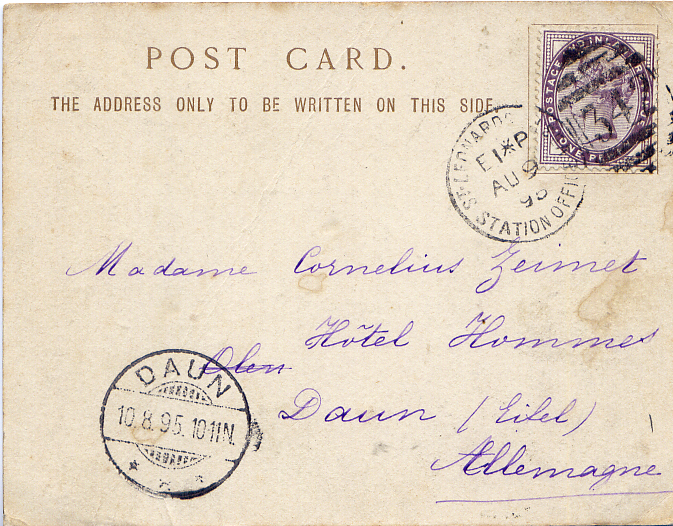 POST CARD.
THE ADDRESS ONLY TO BE WRITTEN ON THIS SIDE
POSTAGE AND INLAND
ONE
134
ST LEONARDS STATION OFFICE
E1*P
AU 9
95
Madame Cornelius Zeimet
Hôtel Hommes
Daun (Eifel)
Allemagne
DAUN
10.8.95.10-11N.